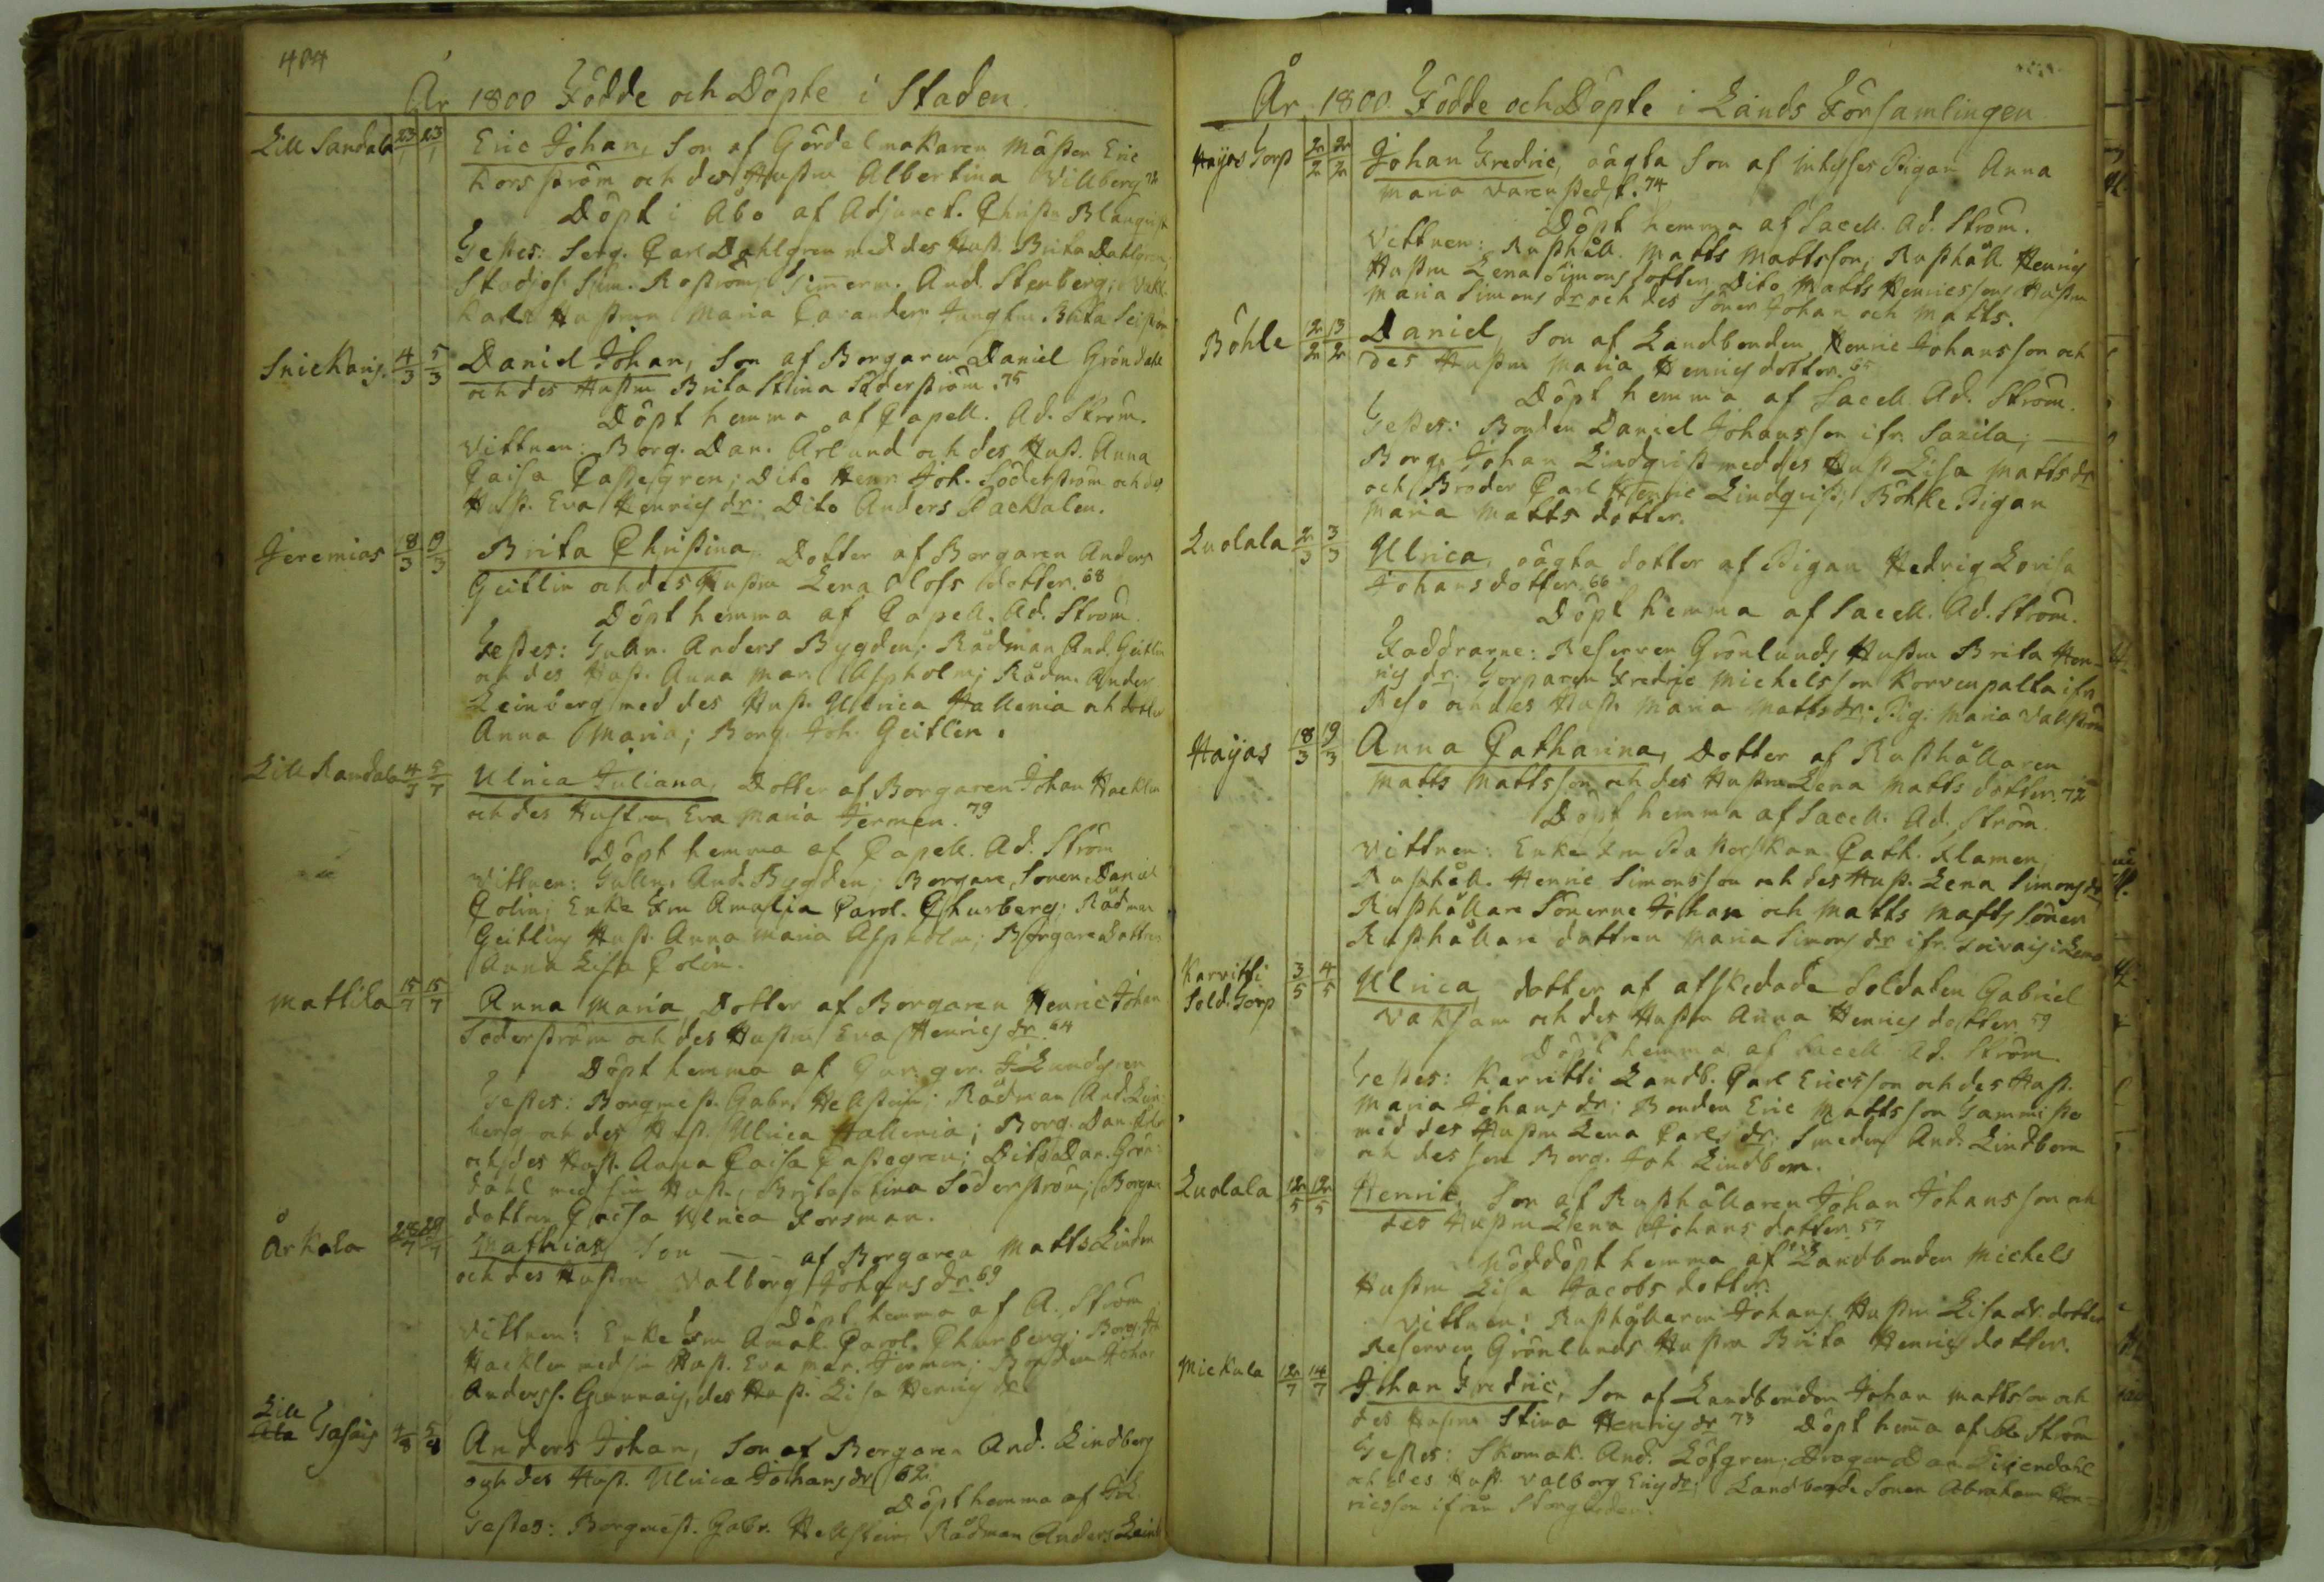 404
År 1800 Födde och Döpte i Staden.
Lill Sandala 23/1 23/1 Eric Johan, Son af Gördelmakaren Mäster Eric
Forsström och des Hustru Albertina Villberg
Döpt i Åbo af Adjunct. Christ. Blanquist
Testes: Serg. Carl Dahlgren med des Hust. Brita Dahlgren,
Studios. Sim. Roström, Timerm. And. Stenberg,
Karls Hustrun Maria Carander Jungfru Brita
Snickars. 4/3 5/3 Daniel Johan, Son af Borgaren Daniel Gröndahl
och des Hustru Brita Stina Söderström. 75
Döpt hemma af Capell. Ad. Ström.
Vittnen: Borg. Dan. Arlund och des Hust. Anna
Caisa Castegren; Dito Henr. Joh. Söderström och des
Hust. Eva Henrics dr; Dito Anders Packalen.
Jeremias 18/3 19/3 Brita Christina, Dotter af Borgaren Anders
Geitlin och des Hustru Lena Olofs dotter. 68
Döpt hemma af Capell. Ad. Ström.
Testes: Gulln. Anders Bygden; Rådman And. Geitlin
och des Hust. Anna Mar. Aspholm; Rådm. Anders
Leinberg med des Hust. Ulrica Hallenia och dotter
Anna Maria; Borg. Joh. Geitlin.
Lill Randala 4/7 5/7 Ulrica Juliana, Dotter af Borgaren Johan Hacklin
och des Hustru Eva Maria Jermen. 79
Döpt hemma af Capell. Ad. Ström
Vittnen: Gulln. And. Bygden; Borgare Sonen Daniel
Colin; Enke Fru Amalia Carol. Churberg; Rådman
Geitlins Hust. Anna Maria Aspholm; Borgare Dottren
Anna Lisa Colin.
Mattila 15/7 15/7 Anna Maria Dotter af Borgaren Henric Johan
Söderström och des Hustru Eva Henrics dr. 64
Döpt hemma af J. Lundgren
Testes: Borgmest. Gabr. Hellstein; Rådman And. Lein-
berg och des Hust. Ulrica Hallenia; Borg. Dan. Arl.
och des Hust. Anna Caisa Castegren; Dito Dan. Grön-
dahl med sin Hust. Brita Stina Söderström; Borgare
dottren Caisa Ulrica Forsman.
Arkala 28/7 29/7 Mathias Son — af Borgaren Matts Lindm
och des Hustru Valborg Johans dr. 69
Döpt hemma af A. Ström
Vittnen: Enke Fru Amal. Carol. Churberg; Borg. Joh
Hacklin med sin Hust. Eva Mar. Jermen; Bonden Johan
Anderss. Gunnais, des Hust. Lisa Henrics dr
Lill
Tasais 4/8 5/8 Anders Johan, Son af Borgaren And. Lindberg
och des Hust. Ulrica Johans dr 62
Döpt hemma af
Testes: Borgmest. Gabr. Hellstein, Rådman Anders Lein
År 1800 Födde och Döpte i Lands Församlingen
Hayas Torp 2/2 2/2 Johan Fredric, oägta Son af Inhyses Pigan Anna
Maria Varenstedt. 74
Döpt hemma af Sacell. Ad. Ström.
Vittnen: Rusthåll. Matts Mattsson, Rusthåll. Henrics
Hustru Lena Simons dotter, Dito Matts Henricssons Hustru
Maria Simons dr och des Söner Johan och Matts.
Böhle 12/2 13/2 Daniel, Son af Landbonden Henric Johansson och
des Hustru Maria Henrics dotter. 65
Döpt hemma af Sacell. Ad. Ström.
Testes: Bonden Daniel Johansson ifr. Saxila; —
Borg. Johan Lindqvist med des Hust. Lisa Matts dr
och Broder Carl Henric Lindqvist, Böhle Pigan
Maria Matts dotter.
Luolala 2/3 3/3 Ulrica, oägta dotter af Pigan Hedvig Lovisa
Johans dotter. 66
Döpt hemma af Sacell. Ad. Ström.
Faddrarne: Reserven Grönlunds Hustru Brita Hen-
rics dr; Torparen Fredric Michelsson Korvenpalta ifr.
Reso och des Hust. Maria Matts dr; Pig. Maria Vallström
Hayas 18/3 19/3 Anna Catharina, Dotter af Rusthållaren
Matts Mattsson och des Hustru Lena Matts dotter. 72
Döpt hemma af Sacell. Ad. Ström.
Vittnen: Enke Fru Pastorskan Cath. Flamen;
Rusthåll. Henric Simonsson och des Hust. Lena Simons dr
Rusthållare Sönerne Johan och Matts Matts Söner
Rusthållare dottren Maria Simons dr ifr.
Karvitti
Sold. Torp 3/5 4/5 Ulrica, dotter af afskedade Soldaten Gabriel
Vaksam och des Hustru Anna Henrics dotter 59
Döpt hemma af Sacell. Ad. Ström.
Testes: Karvitti Landb. Carl Ericsson och des Hust.
Maria Johans dr; Bonden Eric Mattsson Tammisto
med des Hustru Lena Carls dr; Smeden And. Lindbom
och des son Borg. Joh. Lindbom.
Luolala 12/5 12/5 Henric, Son af Rusthållaren Johan Johansson och
des Hustru Lena Johans dotter. 57
Nöddöpt hemma af Landbonden Michels
Hustru Lisa Jacobs dotter.
Vittnen: Rusthållaren Johans Hustru Lisa dotter
Reserven Grönlunds Hustru Brita Henrics dotter.
Mickula 12/7 14/7 Johan Fredric, Son af Landbonden Johan Mattsson och
des Hustru Stina Henrics dr 73 Döpt hemma af Ström
Testes: Skomak. And. Löfgren; Dan. Liljendahl
och des Hust. Valborg Erics dr; Landbonde Sonen Abraham Hen-
ricsson ifrån Storgården.